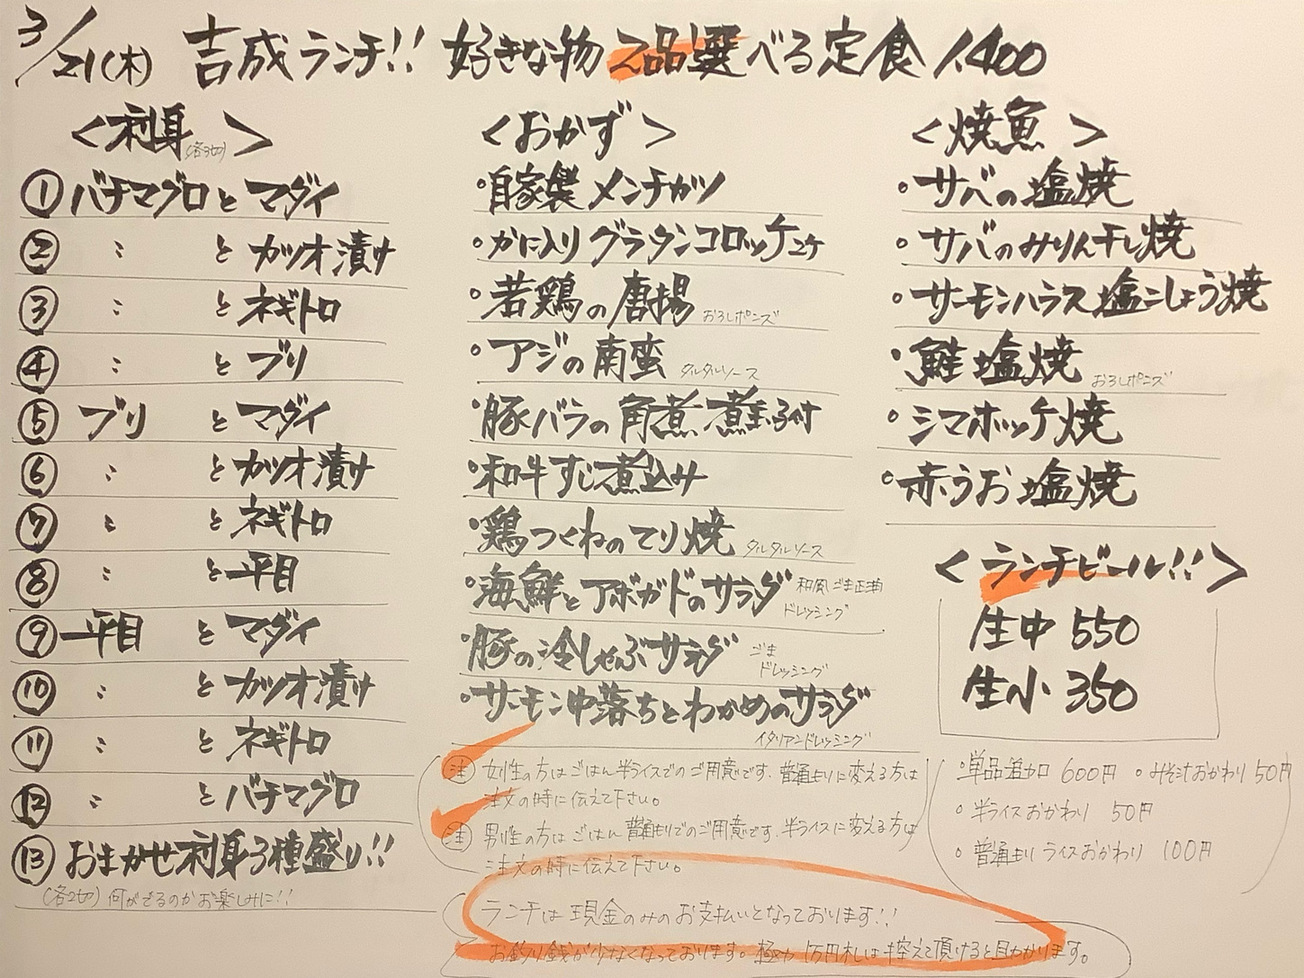 3/21(木) 吉成ランチ!! 好きな物 2品選べる定食 1.400
<刺身(各3切)>
① バチマグロとマダイ
② 〃 とカツオ漬け
③ 〃 とネギトロ
④ 〃 とブリ
⑤ ブリ とマダイ
⑥ 〃 とカツオ漬け
⑦ 〃 とネギトロ
⑧ 〃 と平目
⑨ 平目 とマダイ
⑩ 〃 とカツオ漬け
⑪ 〃 とネギトロ
⑫ 〃 とバチマグロ
⑬ おまかせ刺身3種盛り!!
(各2切) 何がさるのかお楽しみに!!
<おかず>
・自家製メンチカツ
・かに入りグラタンコロッケ2ケ
・若鶏の唐揚 おろしポンズ
・アジの南蛮 タルタルソース
・豚バラの角煮 煮玉子付
・和牛すじ煮込み
・鶏つくねのてり焼 タルタルソース
・海鮮とアボガドのサラダ 和風ごま正油
ドレッシング
・豚の冷しゃぶサラダ ごま
ドレッシング
・サーモン中落ちとわかめのサラダ
イタリアンドレッシング
㊟ 女性の方はごはん半ライスでのご用意です。普通もりに変える方は
注文の時に伝えて下さい。
㊟ 男性の方はごはん普通もりでのご用意です。半ライスに変える方は
ご注文の時に伝えて下さい。
ランチは現金のみのお支払いとなっております!!
お釣り銭が少なくなっております。極力1万円札は控えて頂けると助かります。
<焼魚>
・サバの塩焼
・サバのみりん干し焼
・サーモンハラス塩こしょう焼
・鮭塩焼 おろしポンズ
・シマホッケ焼
・赤うお塩焼
<ランチビール!!>
生中 550
生小 350
・単品追加 600円 ・みそ汁おかわり 50円
・半ライスおかわり 50円
・普通もりライスおかわり 100円